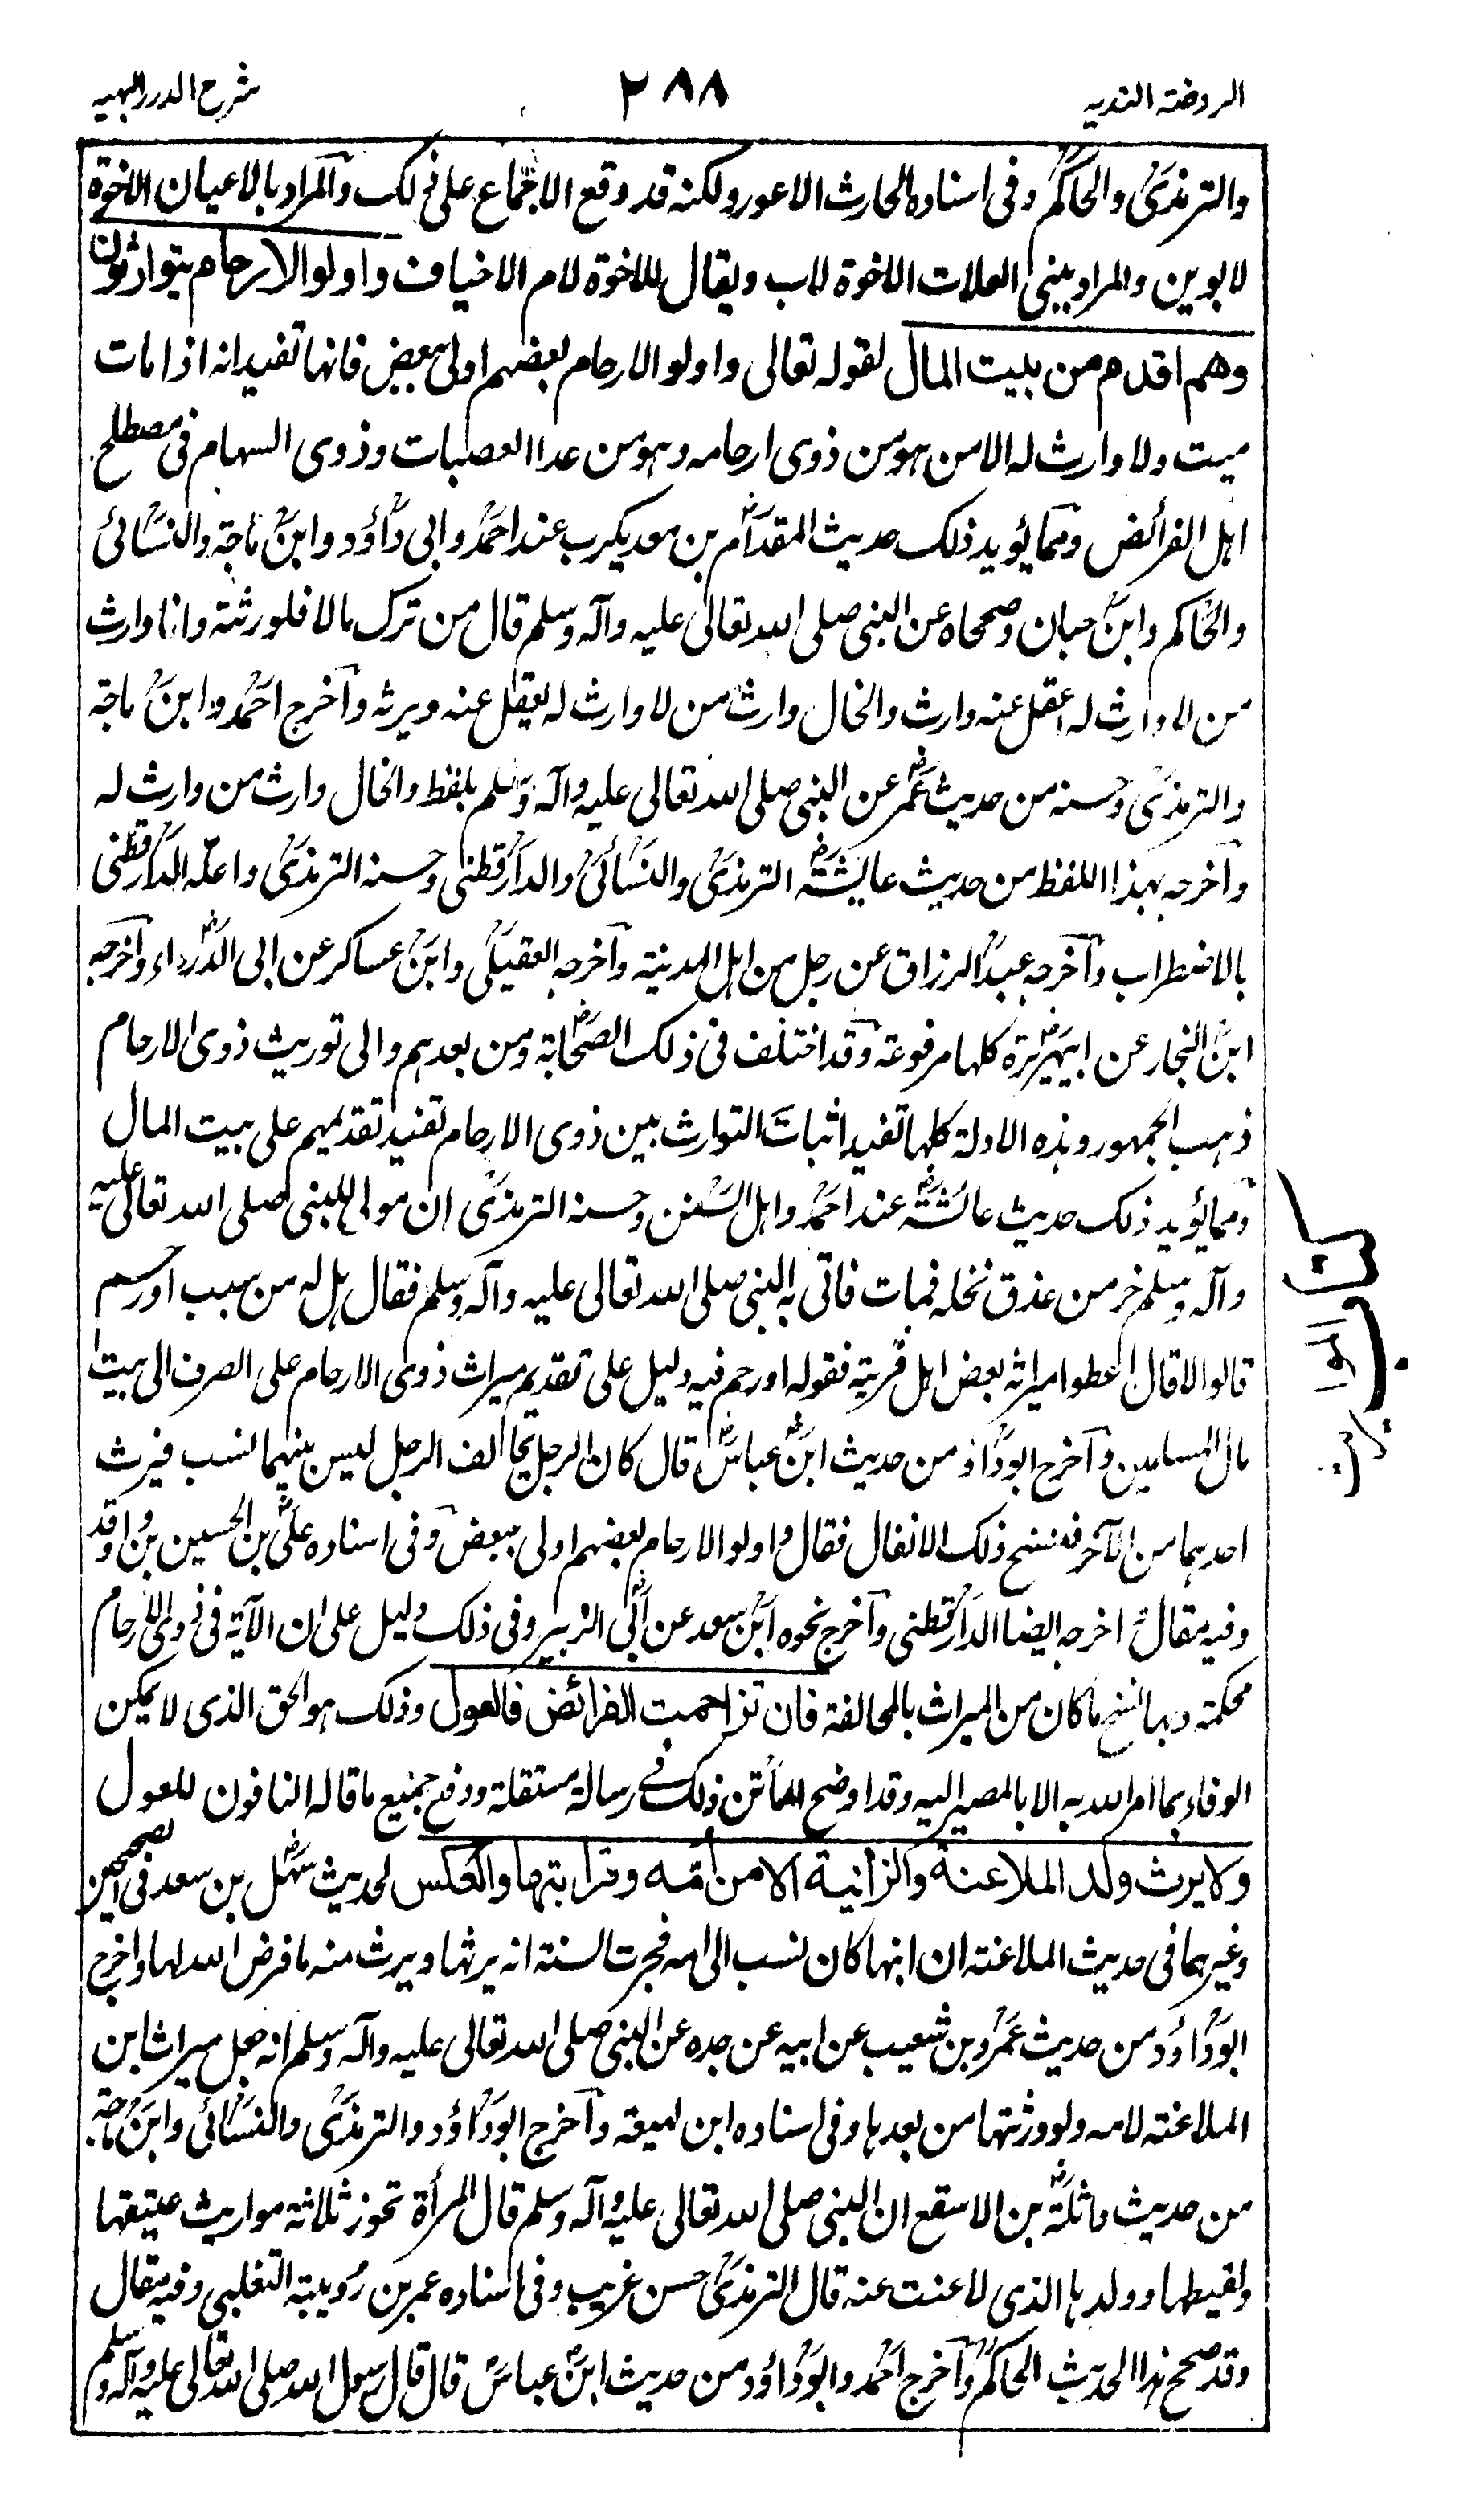 الروضة الندية ٢٨٨ شرح الدرر البهية
والترمذى والحاكم وفى اسناده الحارث الاعور ولكنه قد وقع الاجماع على ذلك والمراد بالاعيان الاخوة
لابوين والمراد ببنى العلات الاخوة لاب ويقال للاخوة لام الاخياف واولوالارحام يتوارثون
وهم اقدم من بيت المال لقوله تعالى واولو الارحام بعضهم اولى ببعض فانها تفيد انه اذا مات
ميت ولا وارث له الا من هو من ذوى ارحامه وهو من عدا العصبات وذوى السهام فى مصطلح
اهل الفرائض ومما يؤيد ذلك حديث المقدام بن معديكرب عند احمد وابى داؤد وابن ماجة والنسائى
والحاكم وابن حبان وصححاه عن النبى صلى الله تعالى عليه وآله وسلم قال من ترك مالا فلورثته وانا وارث
من لا وارث له اعقل عنه وارث والخال وارث من لا وارث له يعقل عنه ويرثه وآخرج احمد وابن ماجة
والترمذى وحسنه من حديث عمر عن النبى صلى الله تعالى عليه وآله وسلم بلفظ والخال وارث من وارث له
وآخرجه بهذا اللفظ من حديث عايشة الترمذى والنسائى والدارقطنى وحسنه الترمذى واعله الدارقطنى
بالاضطراب وآخرجه عبد الرزاق عن رجل من اهل المدينة وآخرجه العقيلى وابن عساكر عن ابى الدرداء وآخرجه
ابن النجار عن ابيهريرة كلها مرفوعة وقد اختلف فى ذلك الصحابة ومن بعدهم والى توريث ذوى الارحام
ذهب الجمهور وهذه الادلة كلها تفيد اثبات التوارث بين ذوى الارحام تفيد تقديمهم على بيت المال
ومما يؤيد ذلك حديث عائشة عند احمد واهل السنن وحسنه الترمذى ان مولى للنبى صلى الله تعالى عليه
وآله وسلم خر من عذق نخله فمات فاتى به النبى صلى الله تعالى عليه وآله وسلم فقال هل له من سبب او رحم
قالوا لا قال اعطوا ميراثه بعض اهل قرية فقوله او رحم فيه دليل على تقديم ميراث ذوى الارحام على الصرف الى بيت
مال المسلمين وآخرج ابوداؤد من حديث ابن عباس قال كان الرجل يحالف الرجل ليس بينهما نسب فيرث
احدهما من الآخر فنسخ ذلك الانفال فقال واولو الارحام بعضهم اولى ببعض وفى اسناده على بن الحسين بن واقد
وفيه مقال اخرجه ايضا الدارقطنى وآخرج نحوه ابن سعد عن ابى الزبير وفى ذلك دليل على ان الآية فى ذوى الارحام
محكمة وبها نسخ ما كان من الميراث بالمحالفة فان تزاحمت الفرائض فالعول وذلك هو الحق الذى لا يمكن
الوفاء بما امر الله به الا بالمصير اليه وقد اوضح الماتن ذلك فى رسالة مستقلة ودفع جميع ما قاله النافون للعول
ولا يرث ولد الملاعنة والزانية الا من امه وقرابتها والعكس لحديث سهل بن سعد فى الصحيحين
وغيرهما فى حديث الملاعنة ان ابنها كان ينسب الى امه فجرت السنة انه يرثها ويرث منه ما فرض الله لها واخرج
ابوداؤد من حديث عمرو بن شعيب عن ابيه عن جده عن النبى صلى الله تعالى عليه وآله وسلم انه جعل ميراث ابن
الملاعنة لامه ولوورثتها من بعدها وفى اسناده ابن لهيعة وآخرج ابوداؤد والترمذى والنسائى وابن ماجة
من حديث واثلة بن الاسقع ان النبى صلى الله تعالى عليه وآله وسلم قال المرأة تحوز ثلاثة مواريث عتيقها
ولقيطها وولدها الذى لاعنت عنه قال الترمذى حسن غريب وفى اسناده عمر بن رويبة التغلبى وفيه مقال
وقد صحح هذا الحديث الحاكم وآخرج احمد وابوداؤد من حديث ابن عباس قال قال رسول الله صلى الله تعالى عليه وآله وسلم